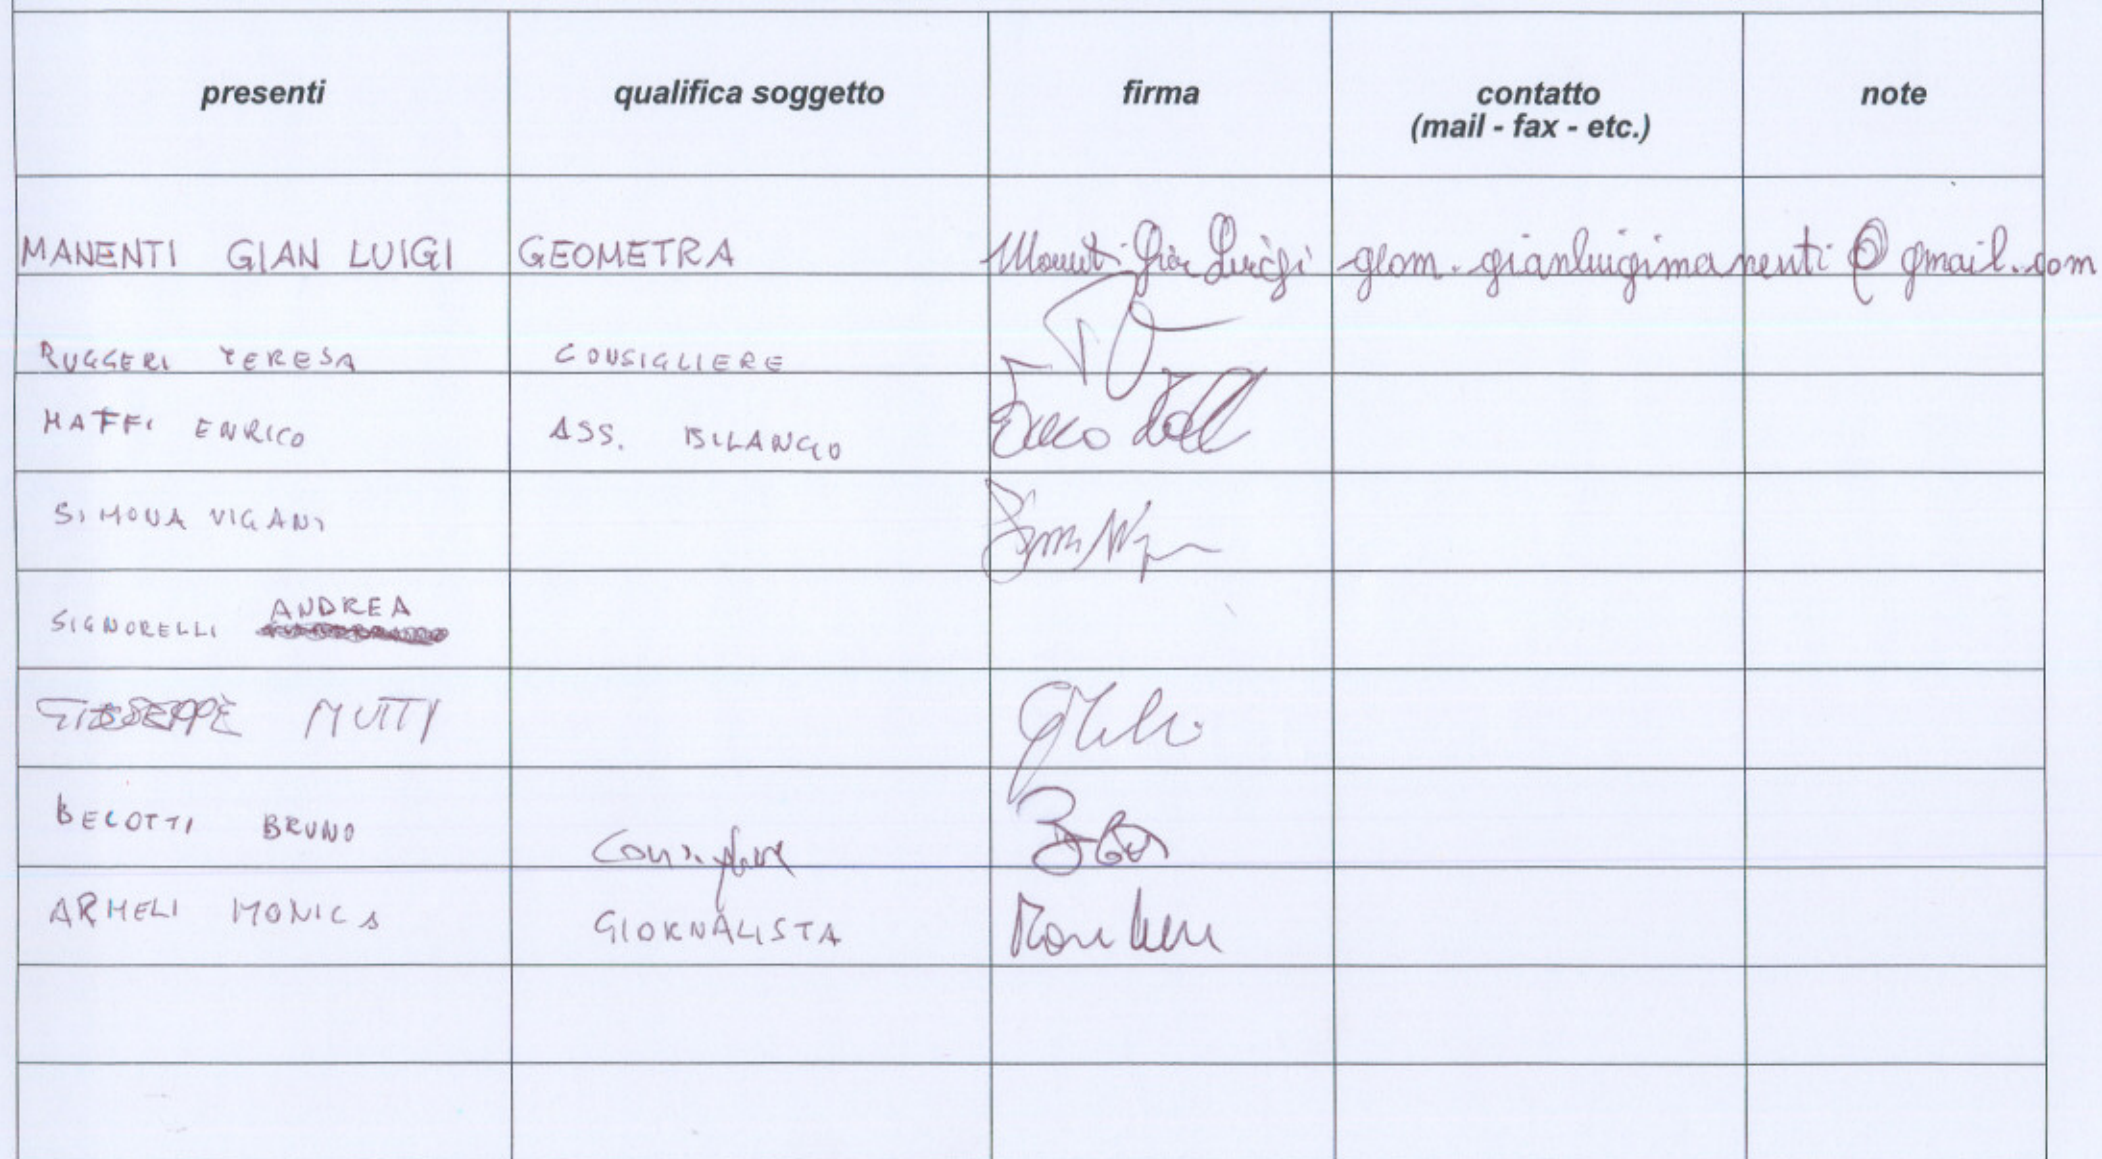 presenti qualifica soggetto firma contatto note
(mail - fax - etc.)
MANENTI GIAN LUIGI GEOMETRA Manenti Gian Luigi geom.gianluigimanenti@gmail.com
RUGGERI TERESA CONSIGLIERE
MAFFI ENRICO ASS. BILANCIO
SIMONA VIGANI
ANDREA
SIGNORELLI
GIUSEPPE MUTTI
BELOTTI BRUNO Consigliere
ARMELI MONICA GIORNALISTA